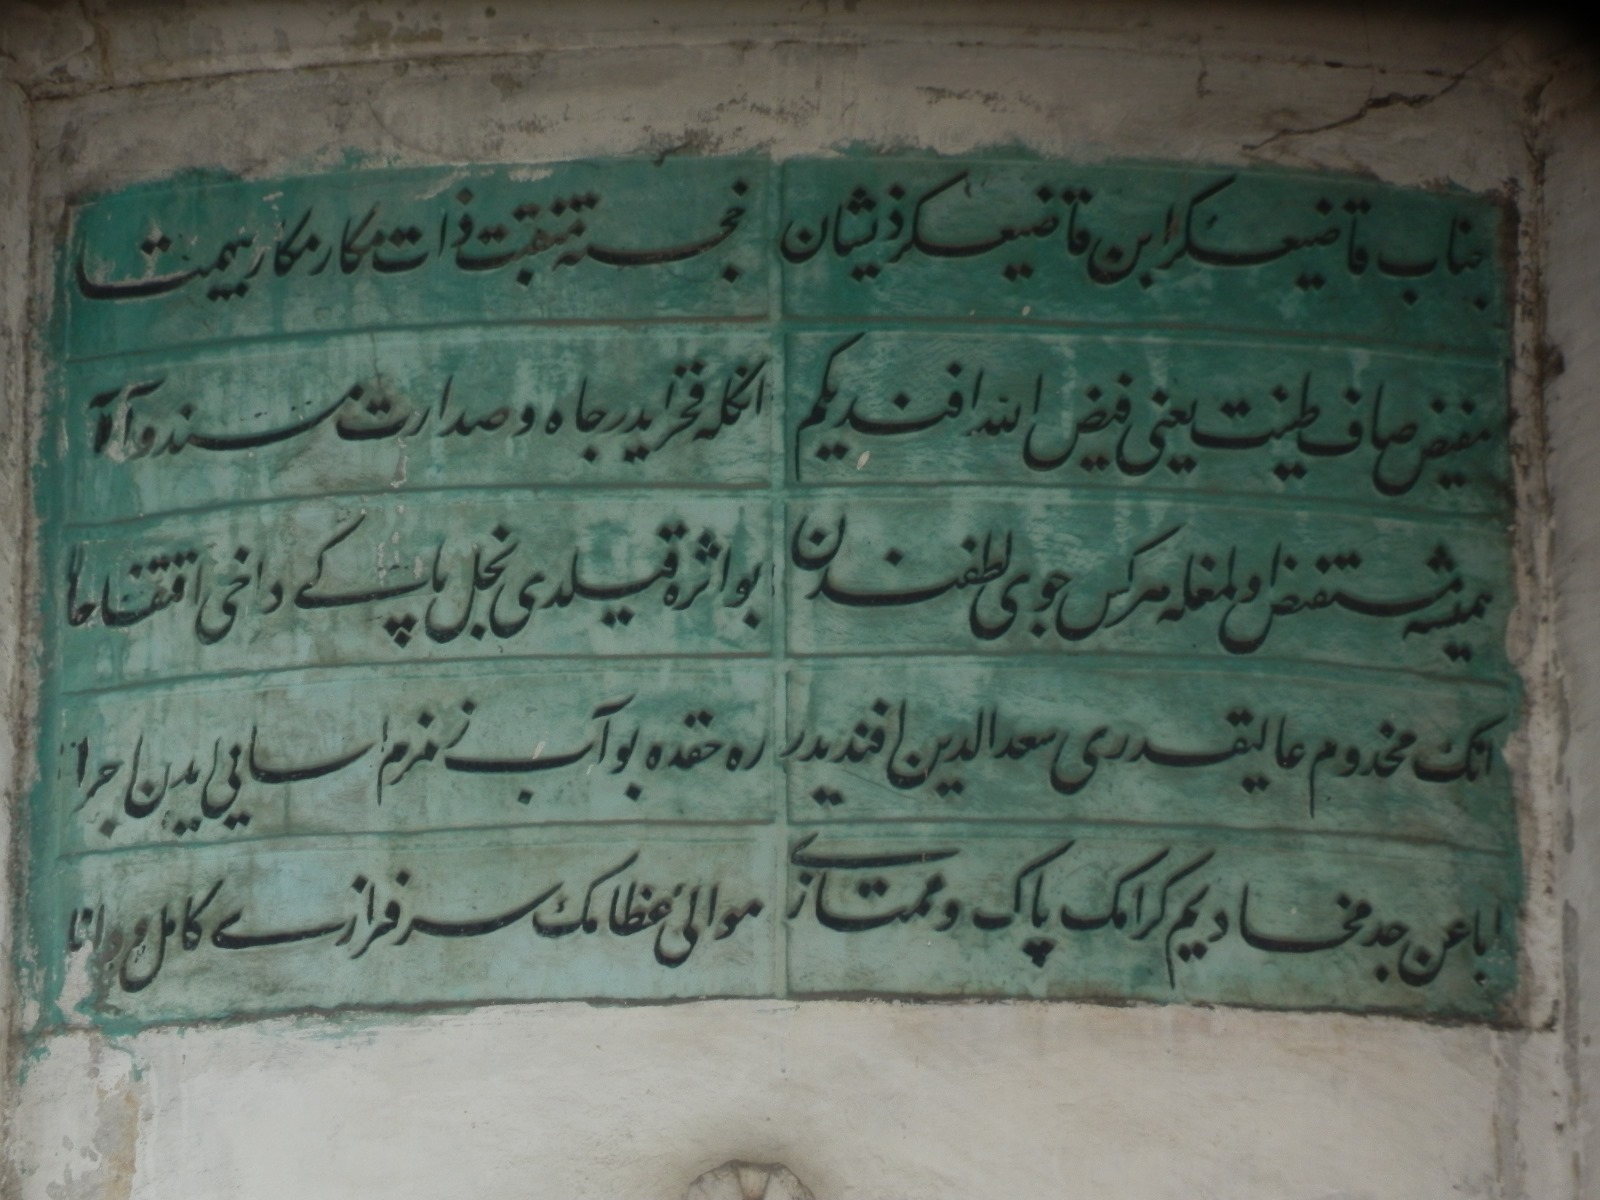 جناب قاضیعسکر ابن قاضیعسکر ذیشان خجسته منقبت ذات مکارمکار بیهمتا
مفیض صاف طینت یعنی فیض الله افندیکم انکله فخر ایدر جاه و صدارت مسند والا
همیشه مستفیض اولمغله هرکس جوی لطفندن بو اثره قیلدی نجل پاکی داخی اقتفا حالا
انك مخدوم عالیقدری سعدالدین افندیدر ره حقده بو آب زمزم اسایی ایدن اجرا
ابا عن جد مخادیم کرامك پاك و ممتازی موالئ عظامك سرفرازی کامل و دانا